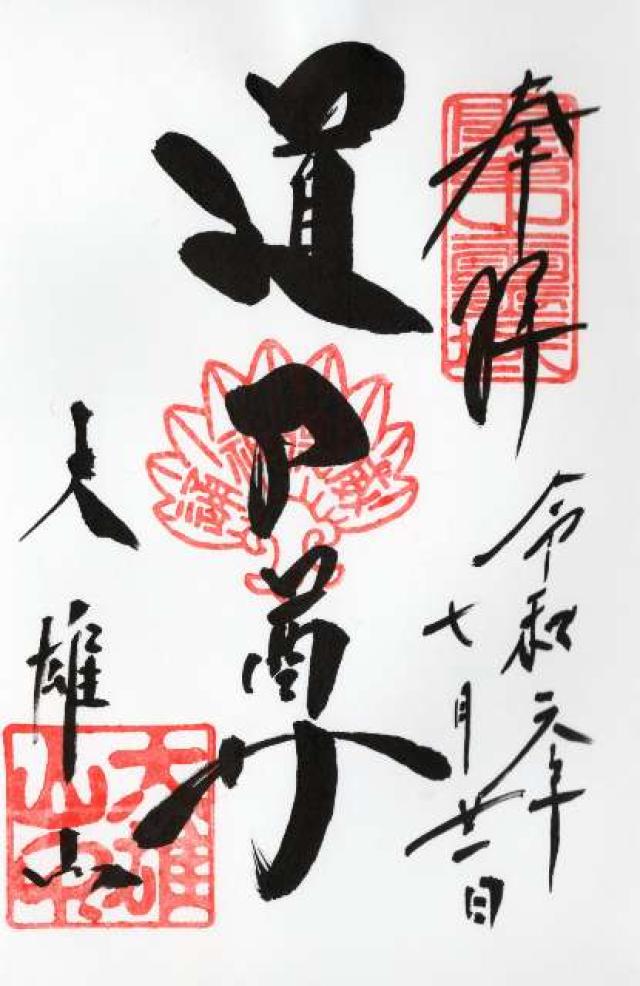 奉拝
令和元年
七月廿一日
道了尊
大雄山